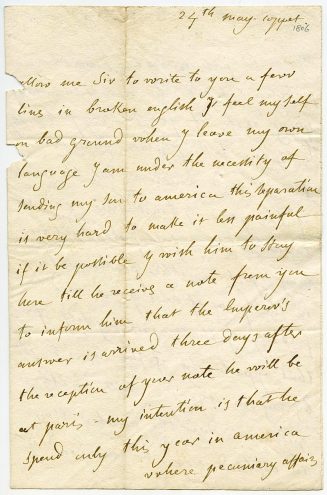 24th may coppet
1806
allow me Sir to write to you a few
lines in broken english y feel my self
on bad ground when y leave my own
language y am under the necessity of
sending my son to america this separation
is very hard to make it less painful
if it be possible y wish him to stay
here till he receives a note from you
to inform him that the Emperor's
answer is arrived three days after
the reception of your note he will be
at paris - my intention is that he
spend only this year in america
where pecuniary affairs